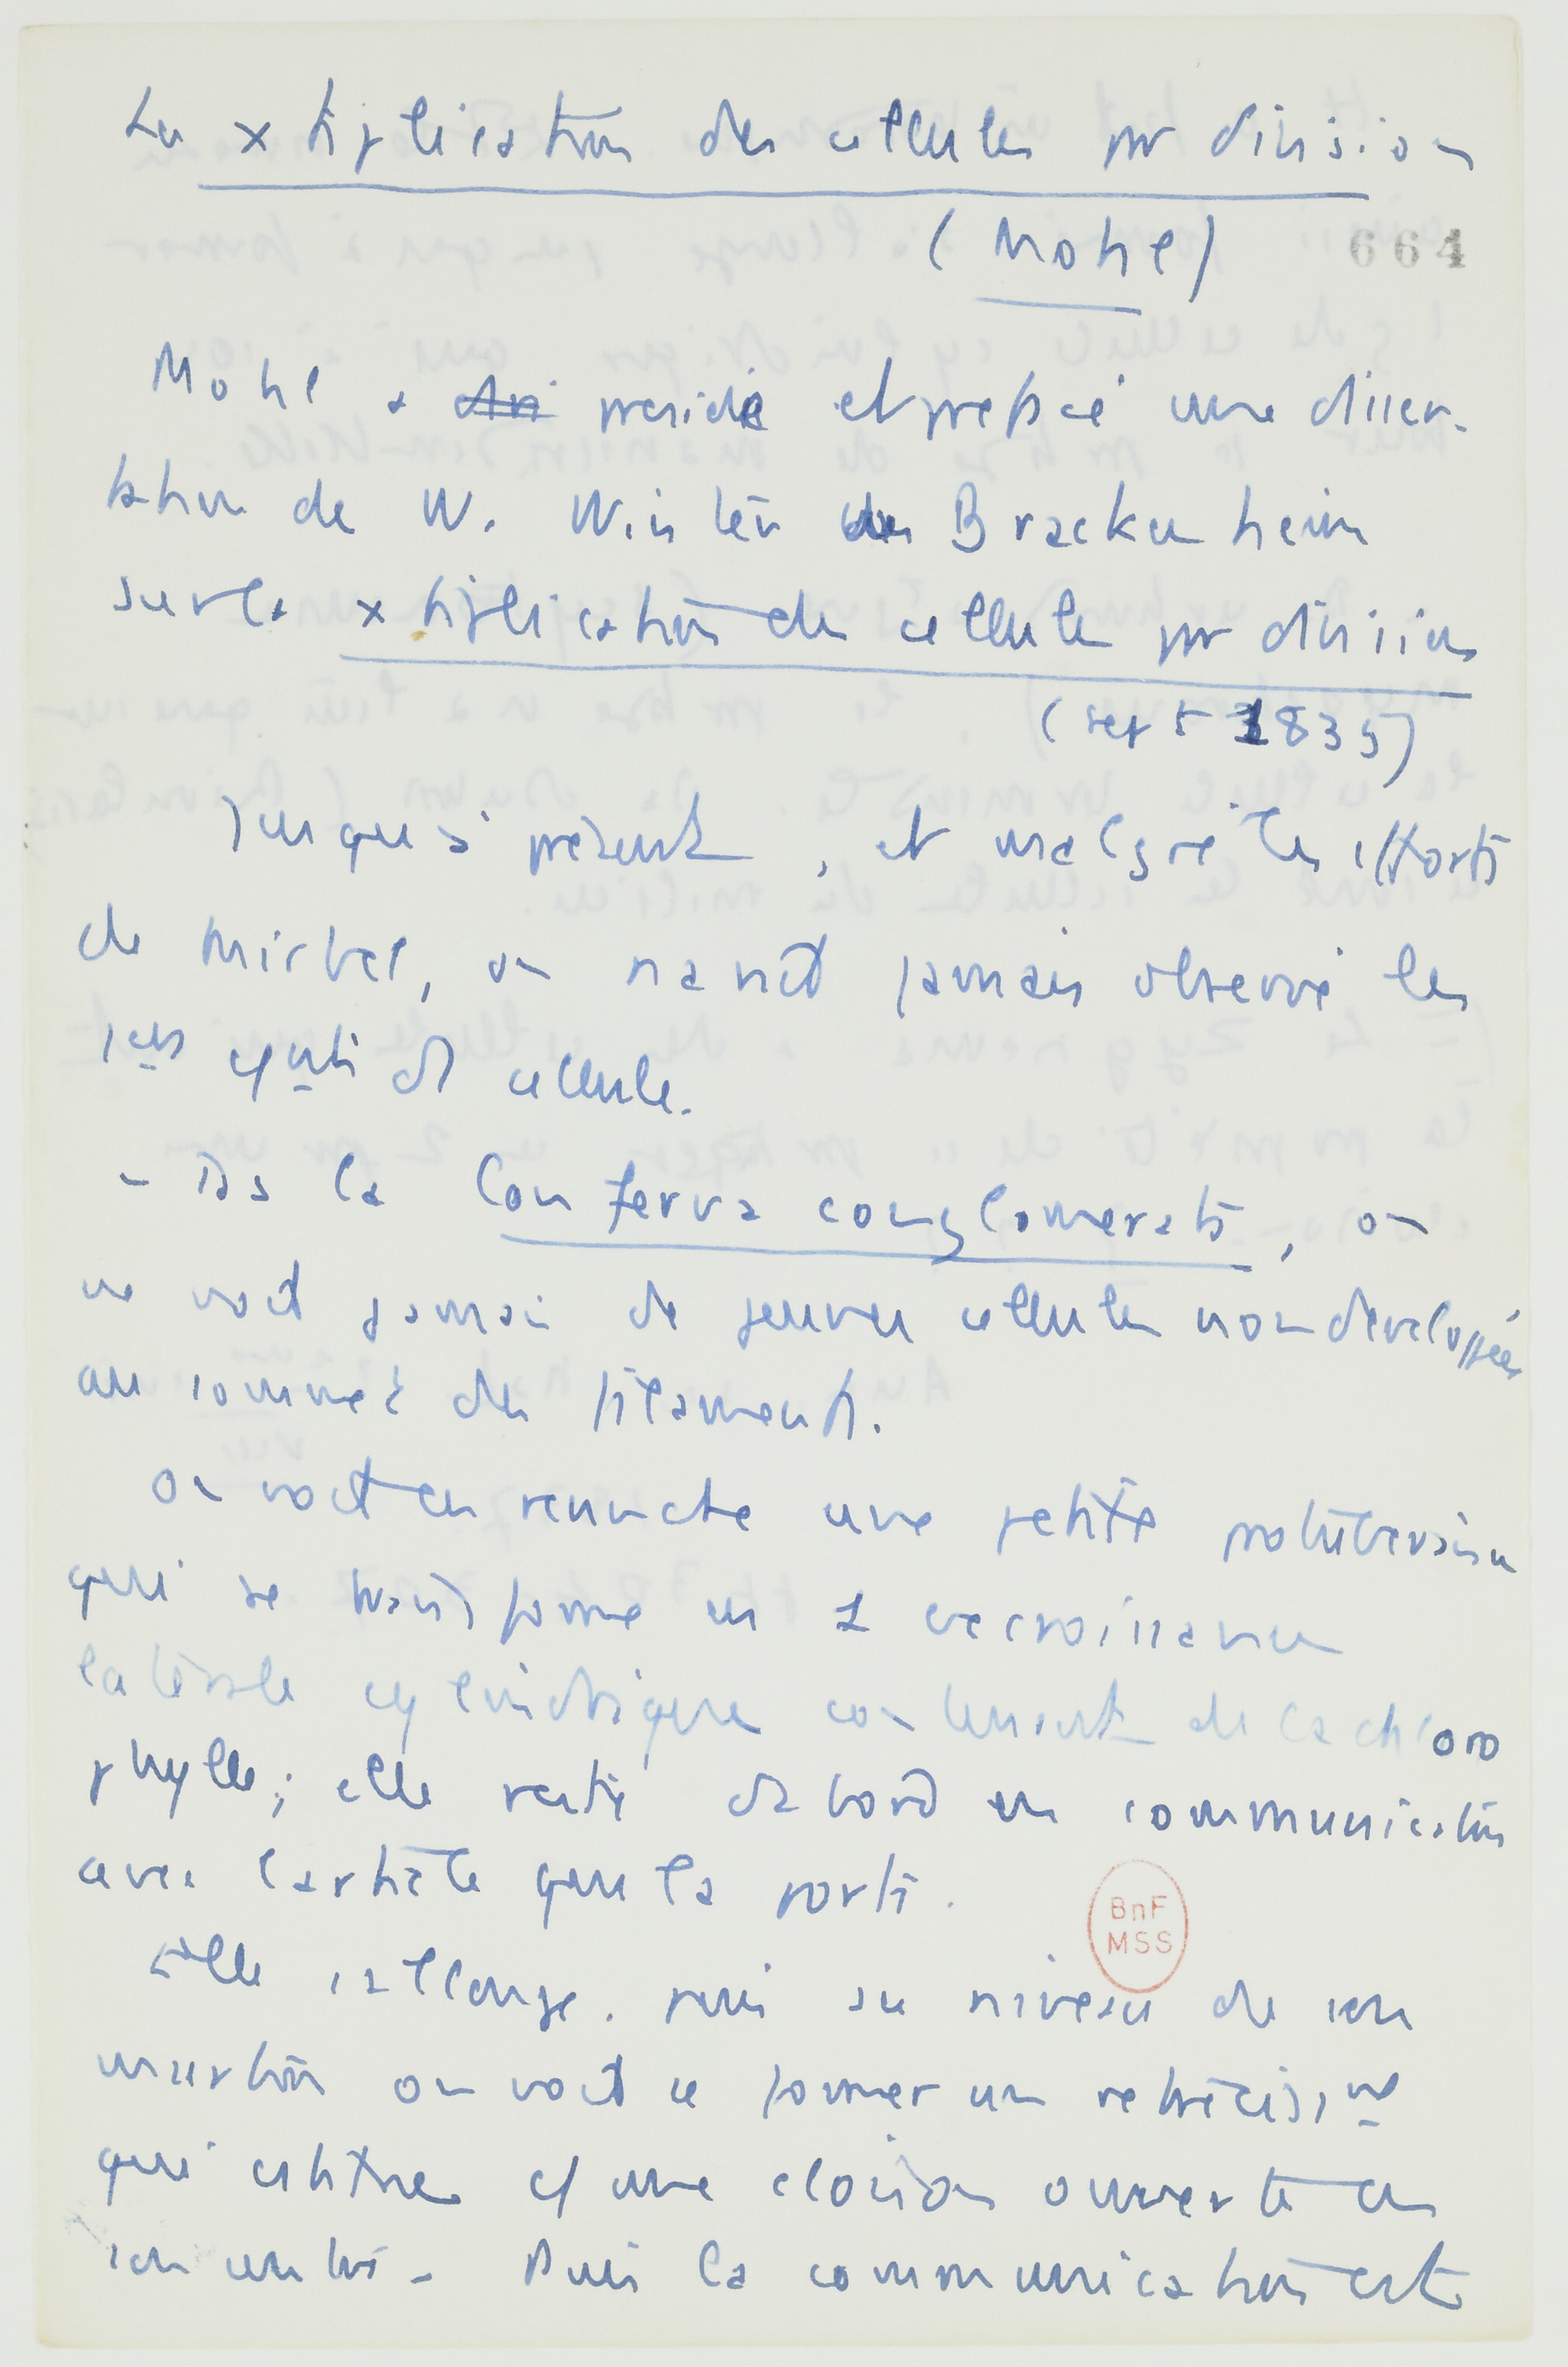 La x tiplication des cellules par division
(Mohl)
664
Mohl a presidé et prefacé une disser-
tation de W. Winter de Brackenheim
sur la x tiplication des cellules par division
(sept 1835)
Jusqu'à présent, et malgré les efforts
de Mirbel, on n'avait jamais observé les
cellule.
- Ds la Conferva conglomerata, on
ne voit jamais de jeunes cellules non developpées
au sommet des filaments.
On voit en revanche une petite protubérance
qui se transforme en 1 excroissance
latérale cylindrique contenant de la chloro
phylle; elle reste d'abord en communication
avec l'article qui la porte.
Elle s'allonge. puis au niveau de son
insertion on voit se former un retrecissmt
qui une cloison ouverte en
son centre - Puis la communication est
BnF
MSS